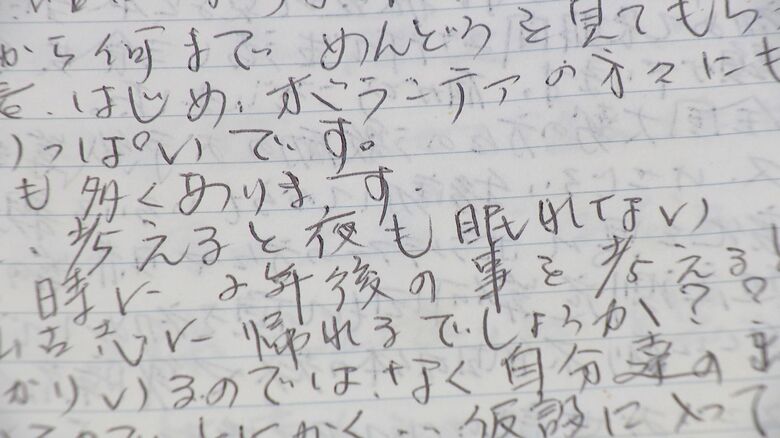 から何まで めんどうを見てもら
はじめ、ボランティアの方々にも
いっぱいです。
も多くあります。
考えると夜も眠れない
時に 2年後の事を考える
古志に帰れるでしょうか??
かりいるのではなく自分達の
とにかく… 仮設に入って